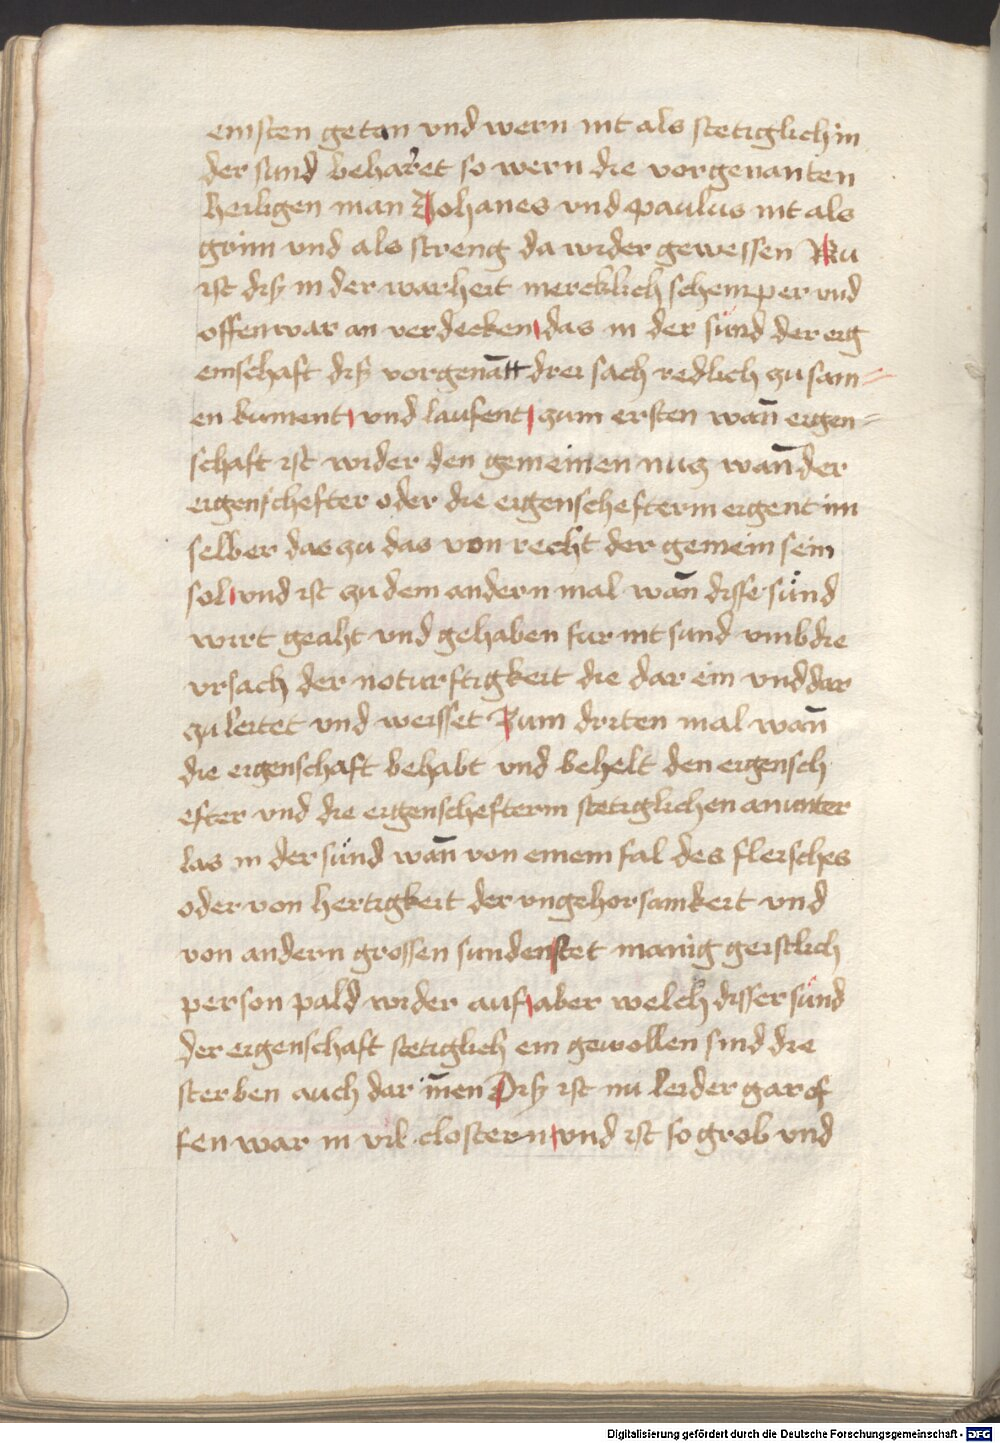 einsten getan vnd wern nit als stetiglich in
der sund beharret so wern die vorgenanten
heiligen man Johanes vnd paulus nit als
grim vnd als streng da wider gewessen Nu
ist diß in der warheit mercklich schemper vnd
offenwar an verdecken das in der sund der eig
einschaft diß vorgenātt drei sach redlich zu sam=
en kument vnd laufent zum ersten wan̄ eigen=
schaft ist wider den gemeinen nucz wan̄ der
eigenschefter oder die eigenschefterin eigent im
selber das zu das von recht der gemein sein
sol vnd ist zu dem andern mal wan̄ disse sünd
wirt geaht vnd gehaben fur nit sund vmb die
vrsach der noturftigkeit die dar ein vnd dar
zu leitet vnd weisset Zum driten mal wan̄
die eigenschaft behabt vnd behelt den eigensch
efter vnd die eigenschefterin stetiglichen an unter
las in der sünd wan̄ von einem fal des fleisches
oder von hertigkeit der vngehorsamkeit vnd
von andern grossen sunden stet manig geistlich
person pald wider auf aber welch disser sünd
der eigenschaft stetiglich ein gewollen sind die
sterben auch dar īnen Diß ist nu leider gar of
fenwar in vil clostern vnd ist so grob vnd
Digitalisierung gefördert durch die Deutsche Forschungsgemeinschaft - DFG